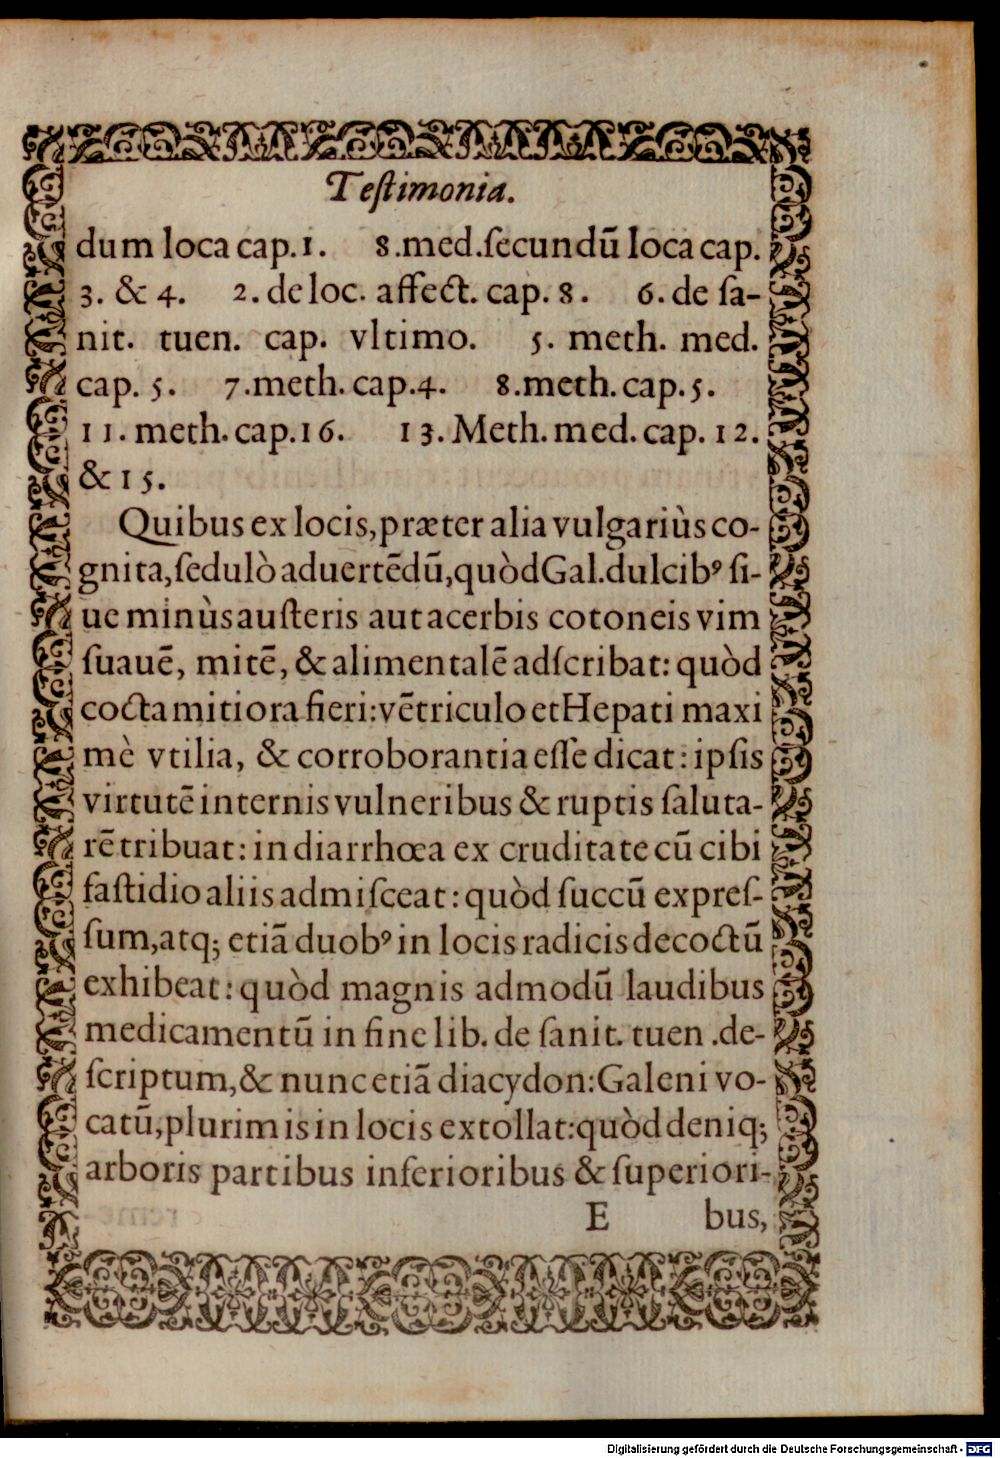 Teſtimonia.
dum loca cap. 1. 8. med. ſecundū loca cap.
3. & 4. 2. de loc. affect. cap. 8. 6. de ſa-
nit. tuen. cap. vltimo. 5. meth. med.
cap. 5. 7. meth. cap. 4. 8. meth. cap. 5.
11. meth. cap. 16. 13. Meth. med. cap. 12.
& 15.
Quibus ex locis, præter alia vulgariùs co-
gnita, ſedulò aduertēdū, quòd Gal. dulcibꝰ ſi-
ue minùs auſteris aut acerbis cotoneis vim
ſuauē, mitē, & alimentalē adſcribat: quòd
cocta mitiora fieri: vētriculo et Hepati maxi
mè vtilia, & corroborantia eſſe dicat: ipſis
virtutē internis vulneribus & ruptis ſaluta-
rē tribuat: in diarrhœa ex cruditate cū cibi
faſtidio aliis admiſceat: quòd ſuccū expreſ-
ſum, atq; etiā duobꝰ in locis radicis decoctū
exhibeat: quòd magnis admodū laudibus
medicamentū in fine lib. de ſanit. tuen. de-
ſcriptum, & nunc etiā diacydon: Galeni vo-
catū, plurimis in locis extollat: quòd deniq;
arboris partibus inferioribus & ſuperiori-
E bus,
Digitalisierung gefördert durch die Deutsche Forschungsgemeinschaft - DFG